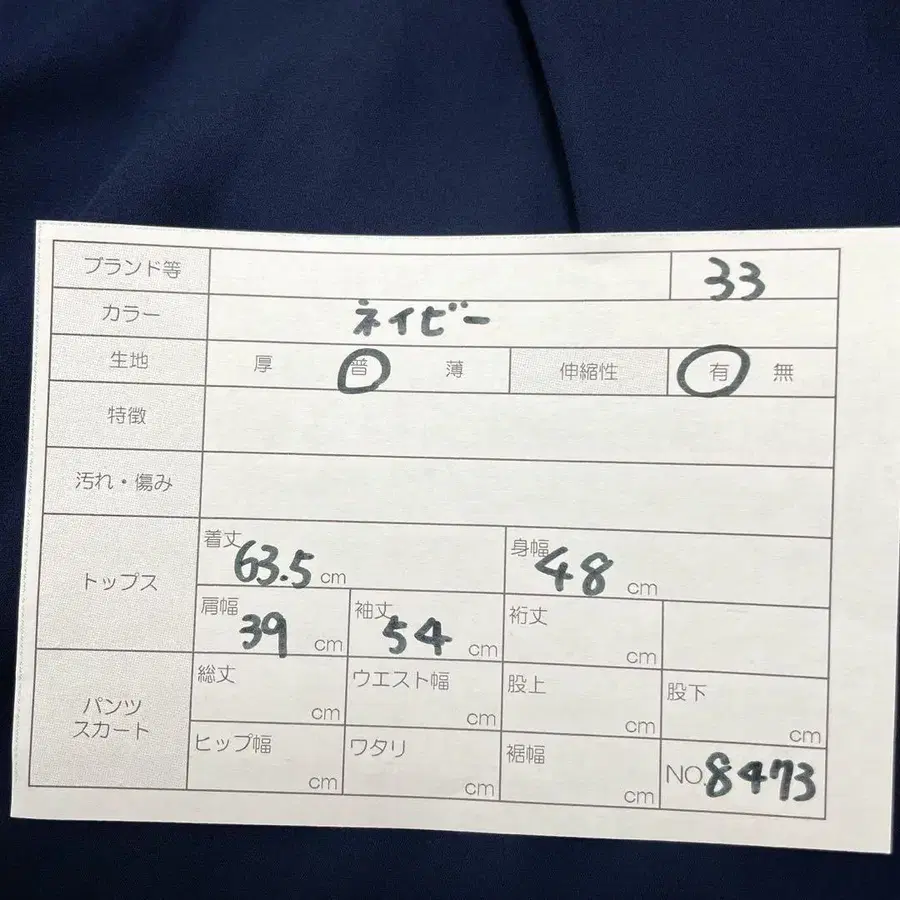 ブランド等 33
カラー ネイビー
生地 厚 普 薄 伸縮性 有 無
特徴
汚れ・傷み
トップス 着丈 63.5 cm 身幅 48 cm
肩幅 39 cm 袖丈 54 cm 裄丈 cm
パンツ スカート 総丈 cm ウエスト幅 cm 股上 cm 股下 cm
ヒップ幅 cm ワタリ cm 裾幅 cm NO. 8473